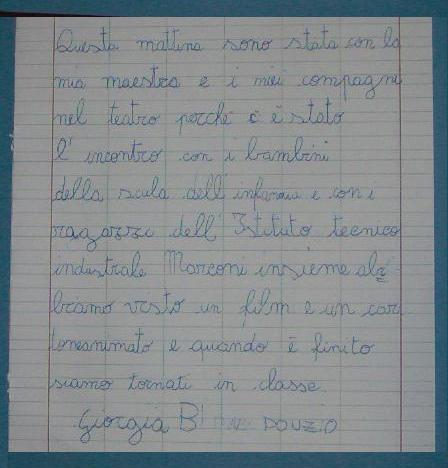 Questa mattina sono stata con la
mia maestra e i miei compagni
nel teatro perché c è stato
l' incontro con i bambini
della scula dell'infanzia e con i
ragazzi dell' Istituto tecnico
industrale Marconi insieme ab
briamo visto un film e un car
toneanimato e quando è finito
siamo tornati in classe.
Giorgia B